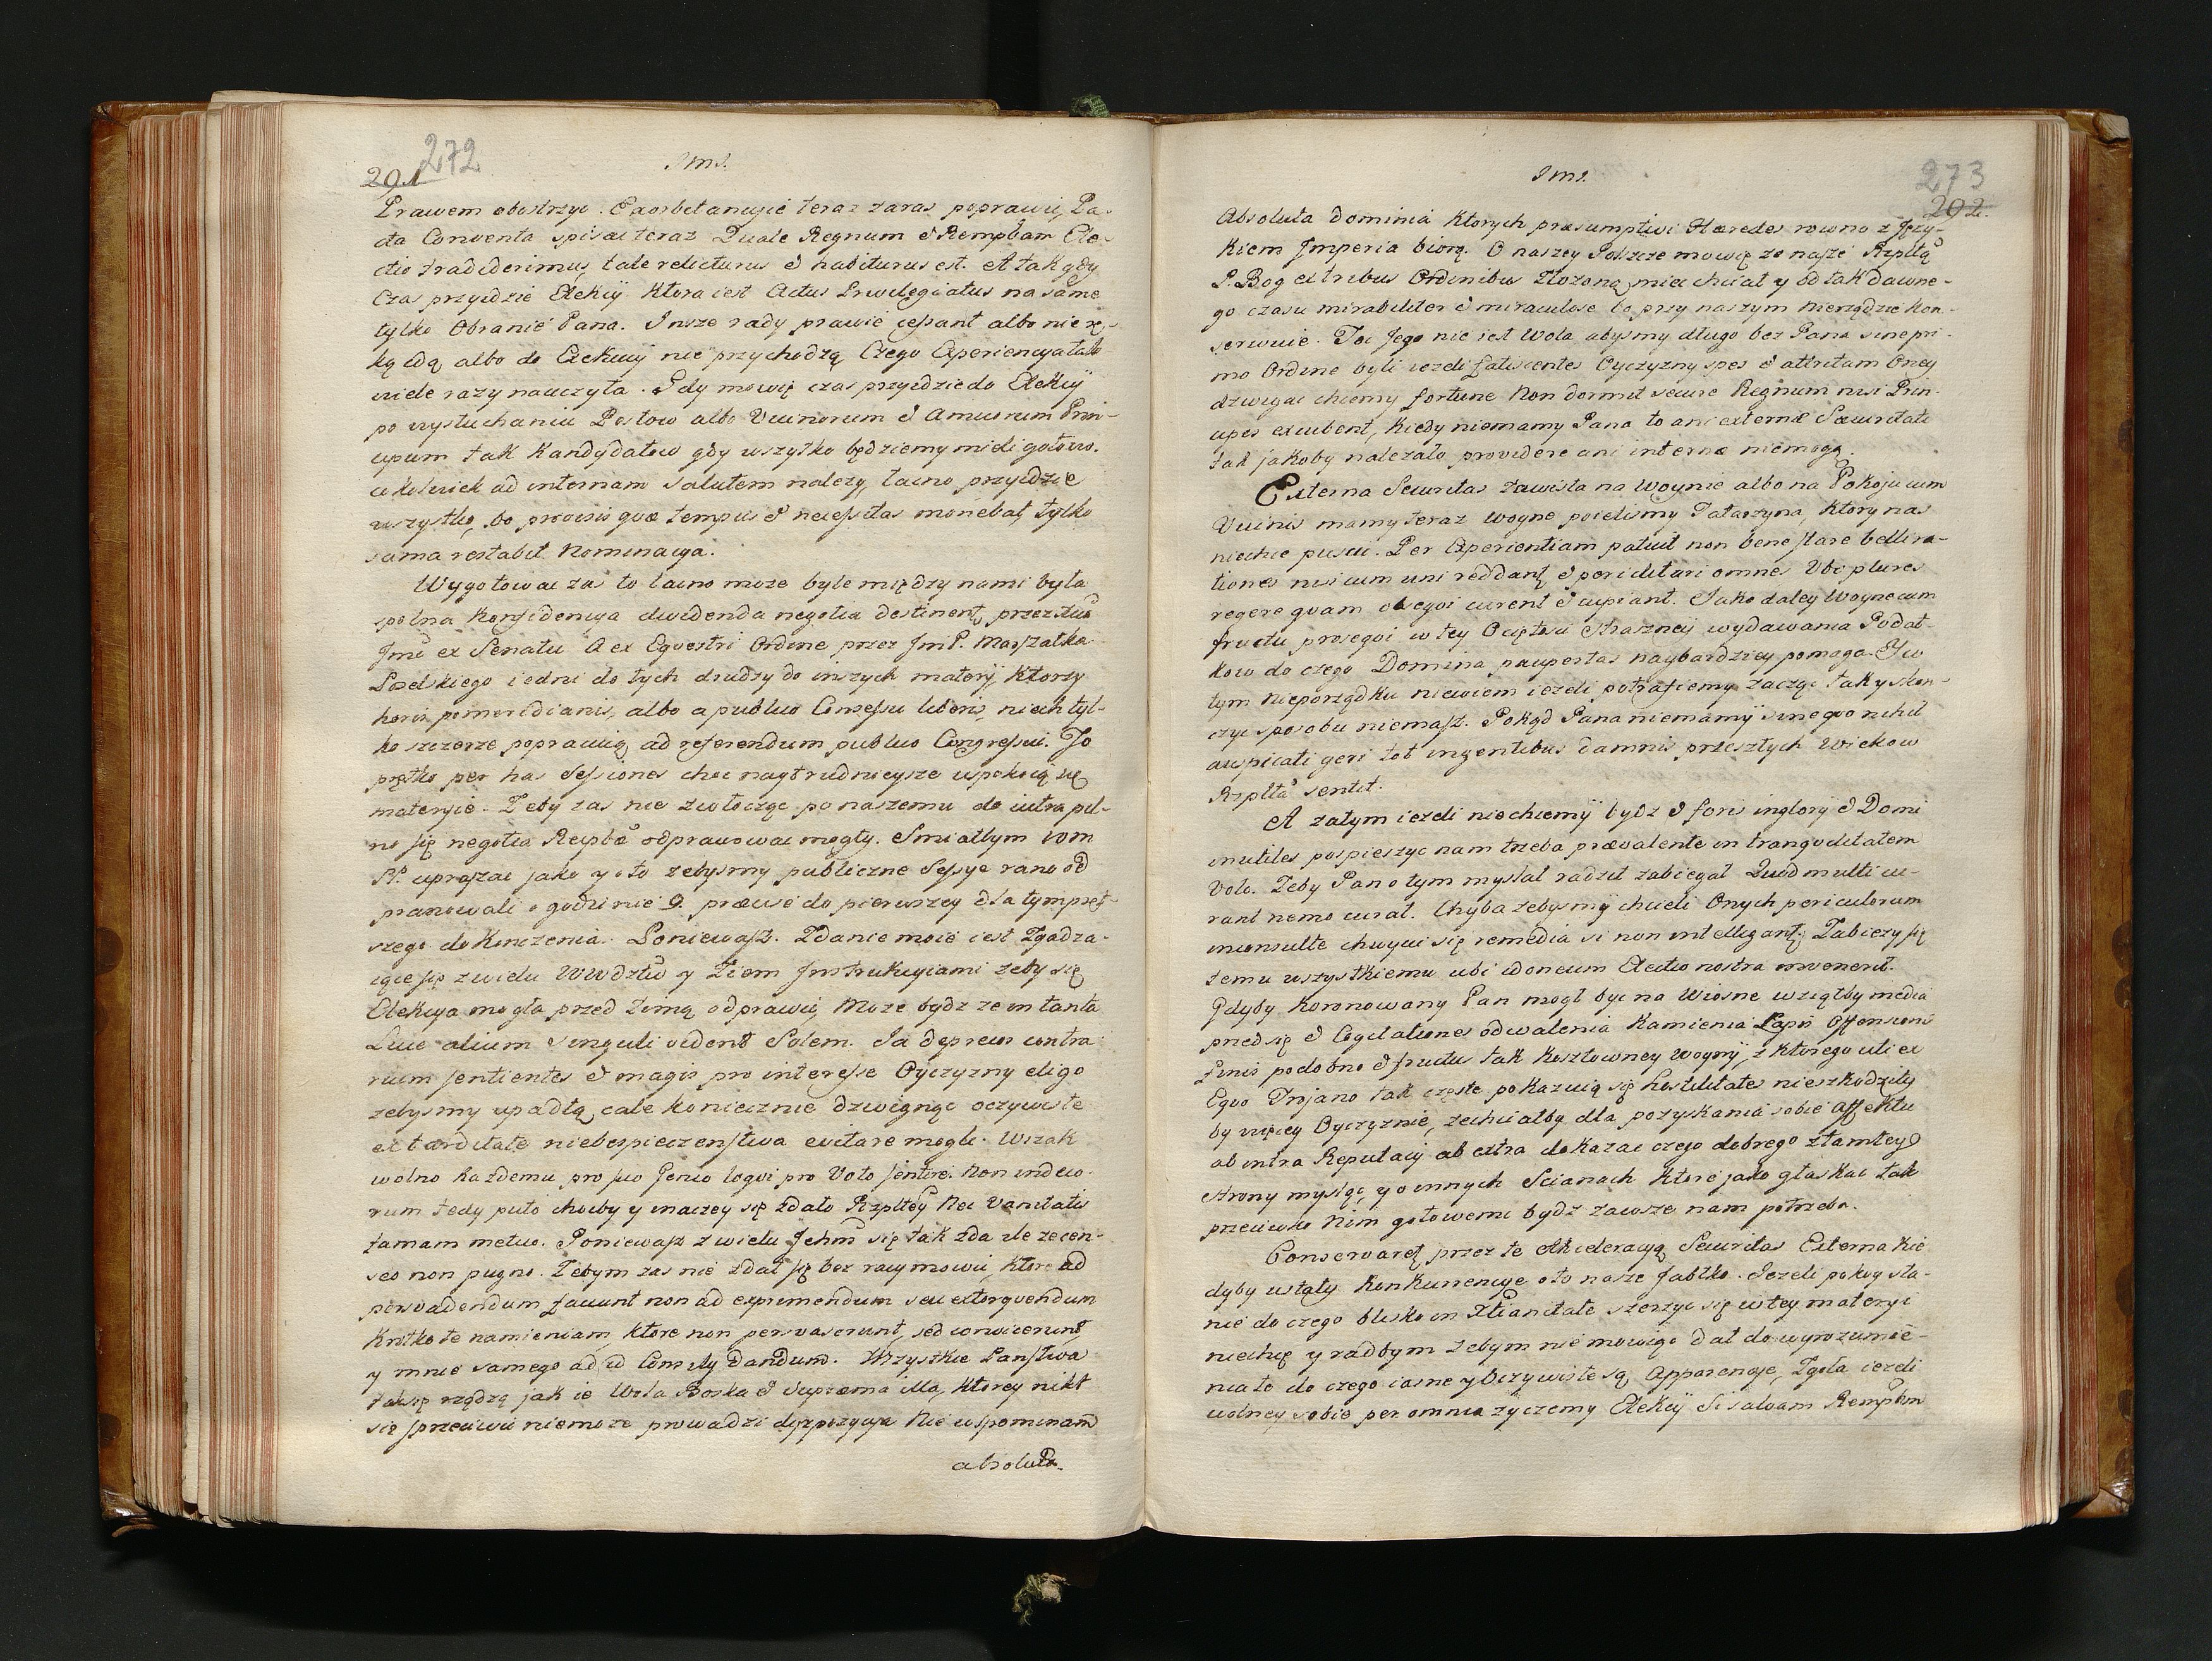 291 272
Sms.
Prawem obostrzyc. Exorbitancyie teraz zaraz poprawic, Pa-
cta Conventa spisac teraz Quale Regnum & Rempbam Ele-
ctio tradiderimus, tale relicturus & habiturus est. A tak gdy
Czas przyidzie Elekcij ktora iest Actus Privilegiatus na same
tylko Obranie Pana. Insze rady prawie cessant albo nie rę-
ką idą albo do Exekucij nie przychodzą Czego Experiencya tak
wiele razy nauczyła. Gdy mowię czas przyidzie do Elekcij
po wysłuchaniu Posłow albo Vicinorum & Amicorum Prin-
cipum tak Kandydatow gdy wszytko będziemy mieli gotowo.
cokolwiek ad internam Salutem nalezy, łacno przyidzie
wszystko, bo provisis quæ tempus & necessitas monebat, tylko
sama restabit Nominacya.
Wygotowac zas to łacno moze byle między nami była
spolna Konfidencya dividenda negotia destinent, przez
Jmć ex Senatu A ex Equestri Ordine przez JmP. Marszałka
Poselskiego iedni do tych drudzy do inszych materij, Ktorzy
horis pomeridianis, albo a publico Consessu liberis, niech tyl-
ko szczerze popracuią ad referendum publico Congressui. To
prętko per has Sessiones choc naytrudnieysze uspokoią się
materyie. Zeby zas nie zwłocząc po naszemu do iutra pil-
no się negotia Reipbæ odprawowac mogły. Smiałbym WM
P. upraszac jako y o to zebysmy publiczne Sessye rano od
prawowali o godzinie 9. prawie do pierwszey dla tym pręt-
szego dokonczenia. Poniewasz. Zdanie moie iest Zgadza-
iące się z wielu WWdztw y Ziem Instrukcyiami zeby się
Elekcya mogła przed Zimą odprawic, Moze bydz ze in tanta
Luce alium singuli vident Solem. Ja deprecor contra-
rium sentientes & magis pro interesse Oyczyzny eligo
zebysmy upadłą cale koniecznie dzwignąc oczywiste
ex tarditate niebezpieczenstwa evitare mogli. Wszak
wolno kazdemu pro suo Genio loqui pro Voto sentire. Non indeco-
rum tedy puto chocby y inaczey się zdało Rzpltey Nec Vanitatis
famam metuo. Poniewasz z wielu Jchm się tak zda ile recen-
seo non pugno. Zebym zas nie zdał się bez racyi mowic, ktore ad
persvadendum faciunt non ad exprimendum seu extorqvendum
Krotko te namieniam, ktore non persvaserunt, sed convicerunt
y mnie samego ad id Consily Dandum. Wszystkie Panstwa
tak się rządzą jak ie Wola Boska & Suprema illa, ktorey nikt
się sprzeciwic niemoze prowadzi dyspozycya Nie wspominam
absoluta.
Sms.
273
292.
Absoluta Dominia Ktorych præsumptivi Hæredes rowno z Języ-
kiem Imperia biorą. O naszey Polszcze mowię ze naszę Rzpltą
P. Bog ex tribus Ordinibus Złozoną miec chciał y od tak dawne-
go czasu mirabiliter & miraculose bo przy naszym nierządzie kon-
serwuie. Toc Jego nie iest Wola abysmy długo bez Pana sine pri-
mo Ordine byli iezeli fatiscentes Oyczyzny spes & attritam Oney
dzwigac chcemy fortune Non dormit secure Regnum nisi Prin-
cipes excubent, Kiedy niemamy Pana to ani externæ Securitati
tak jakoby nalezało providere ani internæ niemogą.
Externa Securitas zawisła na Woynie albo na Pokoju cum
Vicinis mamy teraz woyne poielismy Tatarzyna, Ktory nas
niechie puscic. Per Experientiam patuit non bene stare bellira-
tiones nisi cum uni reddant & periclitari omnes Ubi plures
regere quam obeqvi curent & cupiant. Jako daley Woyne cum
fructu proseqvi w tey Ociętosci straszney wydawania Podat-
kow do czego Domina paupertas naybardziey pomaga Y w
tym nieporządku niewiem iezeli potrafiemy zacząc tak y skon-
czyc sposobu niemasz. Pokąd Pana niemamy sine quo nihil
auspicati geri tot ingentibus damnis przeszłych Wiekow
Rzplta sentit.
A zatym iezeli niechcemy bydz & foris inglorij & Domi
inutiles pospieszyc nam trzeba prævalente in tranqvilitatem
Voto. Zeby Pan o tym myslał radził zabiegał Quod multi cu-
rant nemo curat. Chyba zebysmy chcieli Onych periculorum
inconsulte chwycic się remedia si non intelligant, Zabiezy się
temu wszystkiemu ubi idoneum Electio nostra invenerit.
Gdyby Koronowany Pan mogł byc na Wiosne wziąłby media
przed się & Cogitationes odwalenia Kamienia Lapis Offensionis
Finis podobno & fructus tak Kosztowney Woyny, z ktorego uti ex
Eqvo Trojano tak częste pokazuią się hostilitates nieszkodziły
by więcey Oyczyznie, zechciałby dla pozyskania sobie Affektu
ab intra Reputacij ab extra dokazac czego dobrego z tamtey
strony mysląc, y o innych Scianach ktore jako głaskac tak
przeciwko Nim gotowemi bydz zawsze nam potrzeba.
Conservaret przez te Akceleracyą Securitas Externa Kie-
dyby ustały Konkurrencye o to nasze Jabłko. Jezeli pokoy sta-
nie do czego blisko in Xtianitate szerzyc się w tey materyi
niechię y radbym zebym nie mowiąc dał do wyrozumie-
nia to do czego iasne y Oczywiste są Apparencye, Zgoła iezeli
wolney sobie per omnia zyczemy Elekcij Si salvam Rempbm